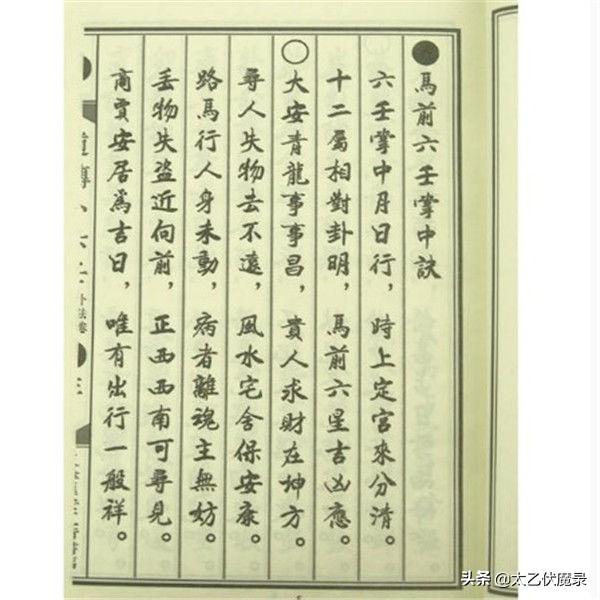 ●馬前六壬掌中訣
六壬掌中月日行，時上定宮來分清。
十二屬相對卦明，馬前六星吉凶應。
○大安青龍事事昌，貴人求財在坤方。
尋人失物去不遠，風水宅舍保安康。
路馬行人身未動，病者離魂主無妨。
丢物失盜近向前，正西西南可尋見。
商賈安居爲吉日，唯有出行一般祥。
頭条 @太乙伏魔录